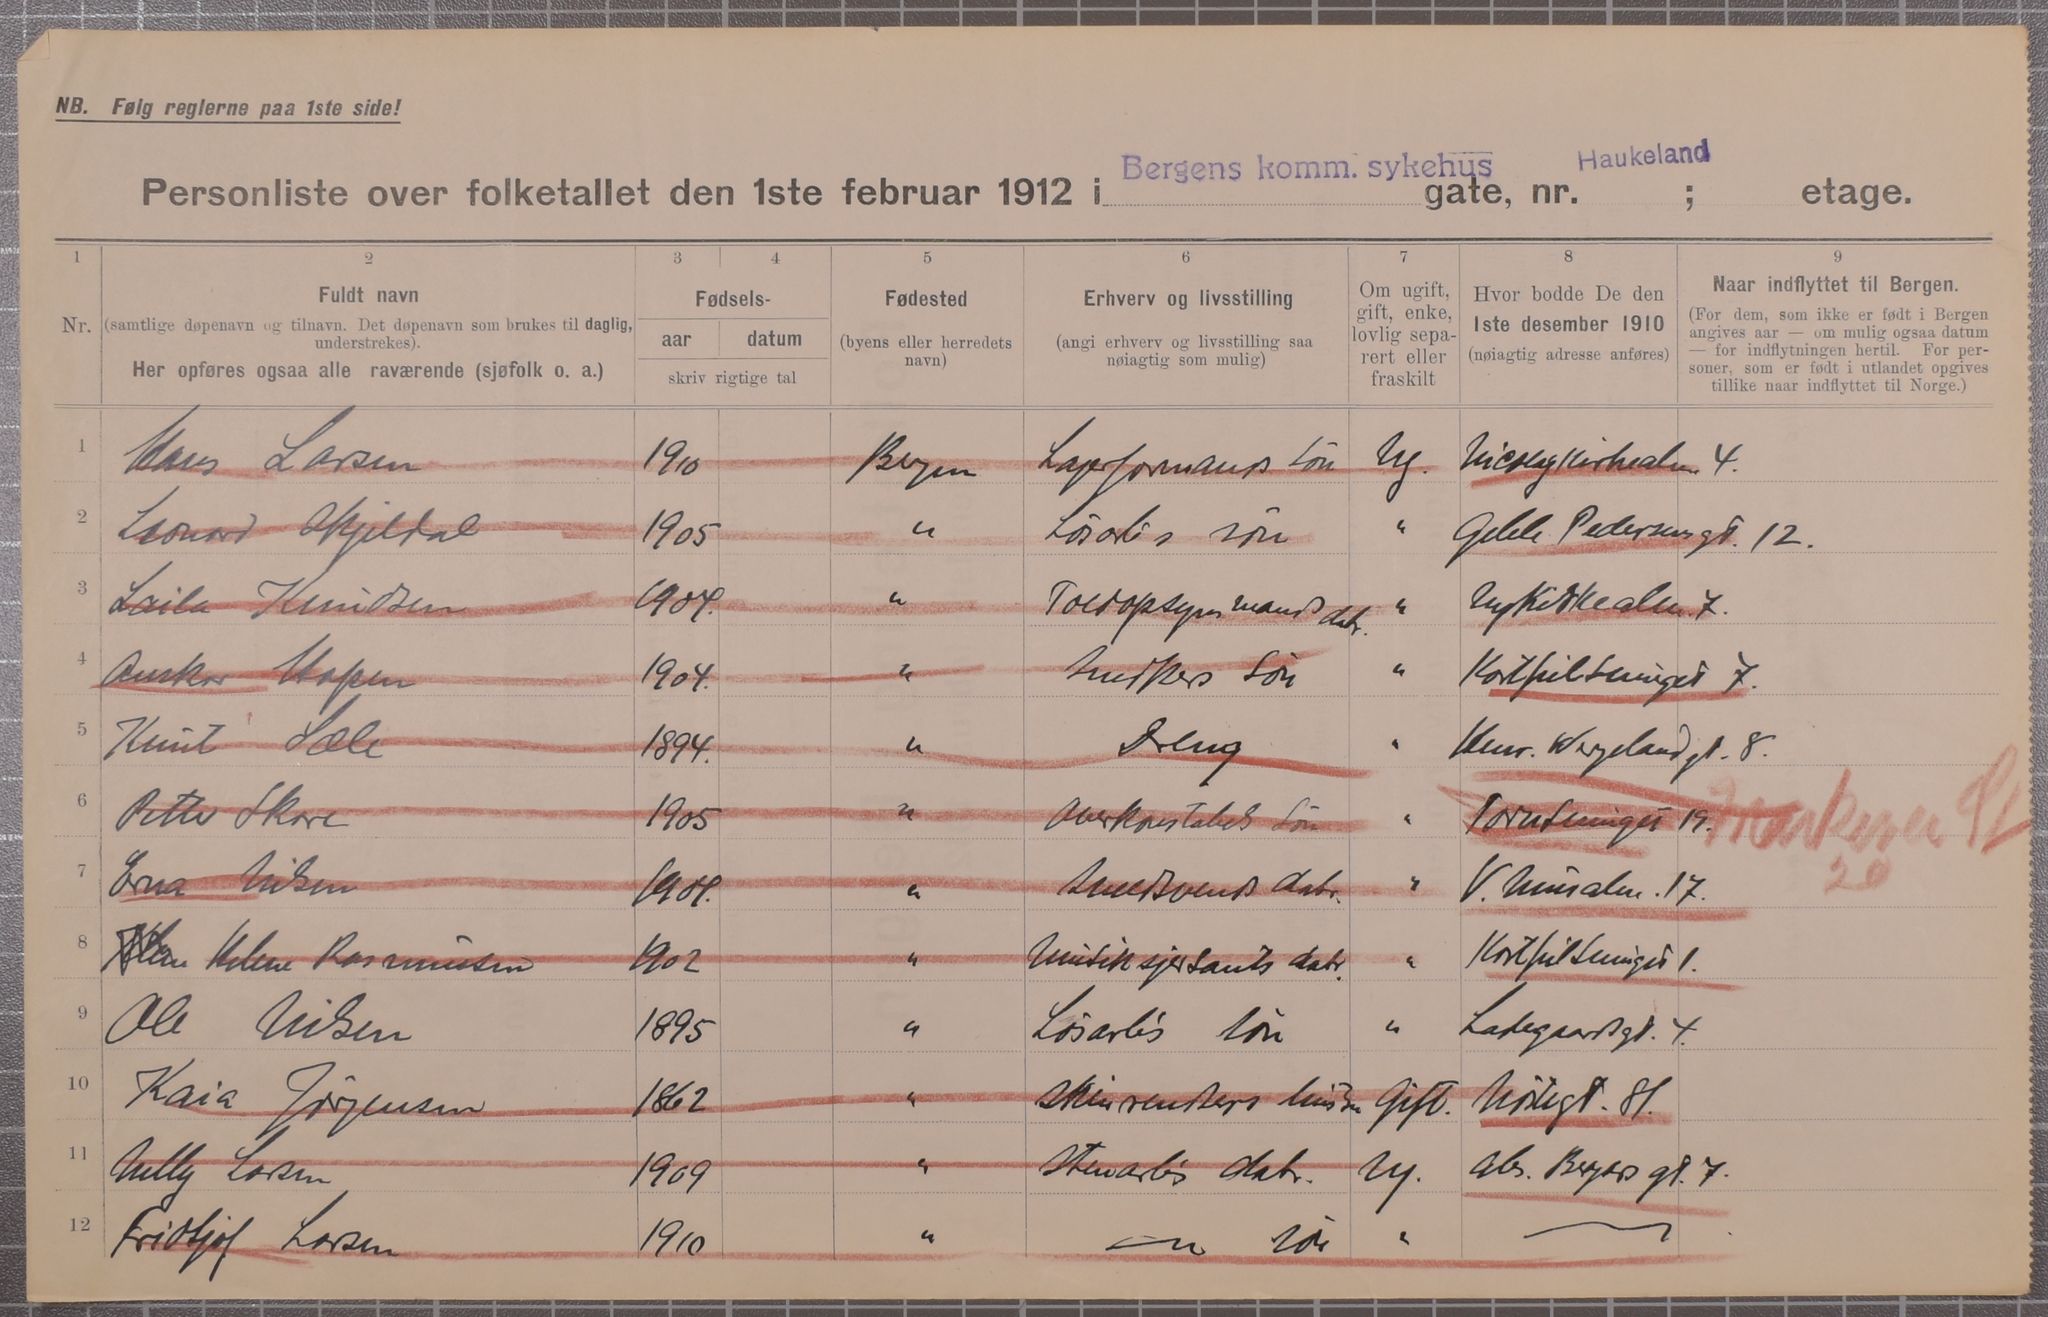 NB. Følg reglerne paa 1ste side!
Bergens komm. sykehus Haukeland
Personliste over folketallet den 1ste februar 1912 i gate, nr. ; etage.
1 2 3 4 5 6 7 8 9
Nr.
Fuldt navn
(samtlige døpenavn og tilnavn. Det døpenavn som brukes til daglig, understrekes).
Her opføres ogsaa alle raværende (sjøfolk o. a.)
Fødsels-
aar datum
skriv rigtige tal
Fødested
(byens eller herredets navn)
Erhverv og livsstilling
(angi erhverv og livsstilling saa nøiagtig som mulig)
Om ugift, gift, enke, lovlig sepa-rert eller fraskilt
Hvor bodde De den
1ste desember 1910
(nøiagtig adresse anføres)
Naar indflyttet til Bergen.
(For dem, som ikke er født i Bergen angives aar — om mulig ogsaa datum — for indflytningen hertil. For per-soner, som er født i utlandet opgives tillike naar indflyttet til Norge.)
1 Hans Larsen 1910 Bergen Lagerformands sön Ug. 4.
2 Leonard Skjeldal 1905 " Lösarb s sön " Pedersensgt. 12.
3 Laila Knudsen 1904. " Toldopsynsmands datr. " Nykirkealm. 7.
4 Hopen 1904. " sön " 7.
5 Knut Sæle 1894. " Dreng " Henr. Wergelandgt. 8.
6 Skare 1905 " Overkonstabels sön " 19.
20
7 Erna Nilsen 1904. " Smedsvends datr. " 17.
8 Helene Rasmussen 1902 " Musiksjersants datr. " 1.
9 Ole Nilsen 1895 " Lösarbs sön " Ladegaardsgt. 4.
10 Kaia Jörgensen 1862 " Gift. 81.
11 Nelly Larsen 1909 " Stenarbs datr. Ug. gt. 7.
12 Fridtjof Larsen 1910 " — " sön " —